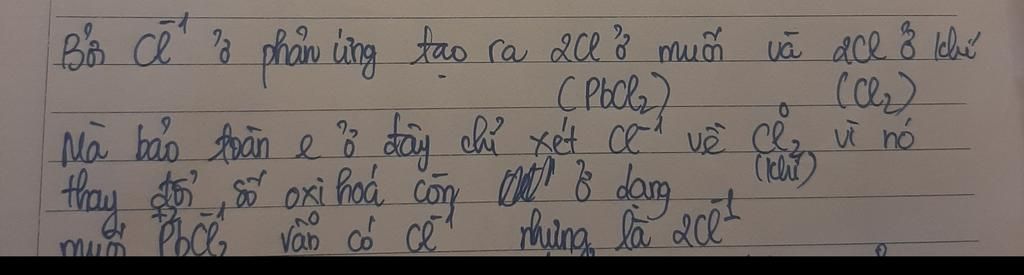 Bốn Cl⁻¹ ở phản ứng tạo ra 2Cl ở muối và 2Cl ở khí
(PbCl₂) (Cl₂)
Mà bảo toàn e ở đây chỉ xét Cl⁻¹ về Cl₂⁰ vì nó
(khí)
thay đổi số oxi hoá còn ở dạng
muối PbCl₂⁻¹ vẫn có Cl⁻¹ nhưng là 2Cl⁻¹